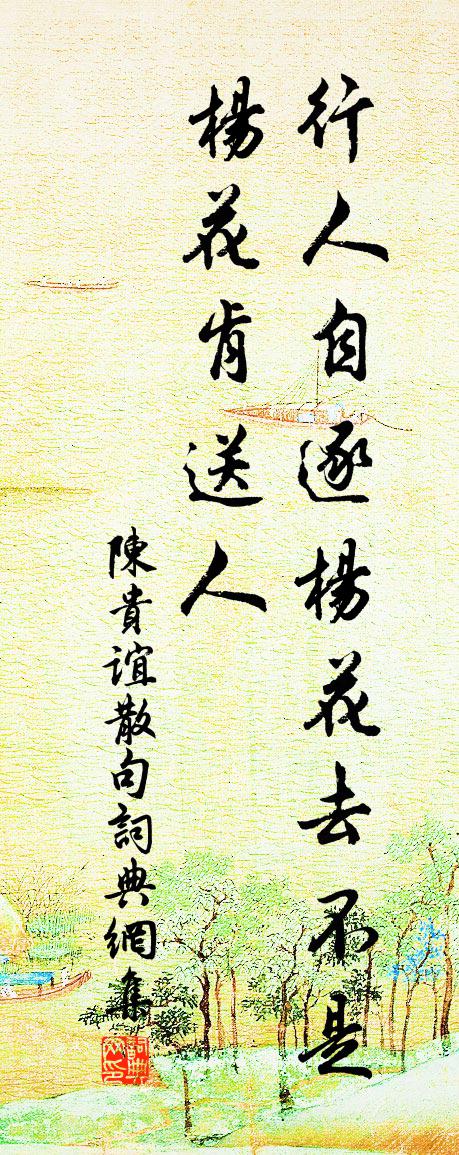 行人自逐楊花去不是
楊花肯送人
陳貴誼散句詞典網集